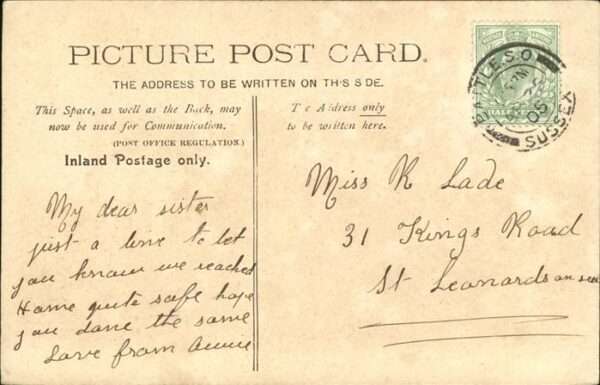 PICTURE POST CARD.
THE ADDRESS TO BE WRITTEN ON TH'S S DE.
This Space, as well as the Back, may
now be used for Communication.
(POST OFFICE REGULATION.)
Inland Postage only.
T e Address only
to be written here.
My dear sister
just a line to let
you know we reached
Home quite safe hope
you done the same
Love from Annie
Miss K Lade
31 Kings Road
St Leonards on sea
BATTLE S.O.
05
SUSSEX